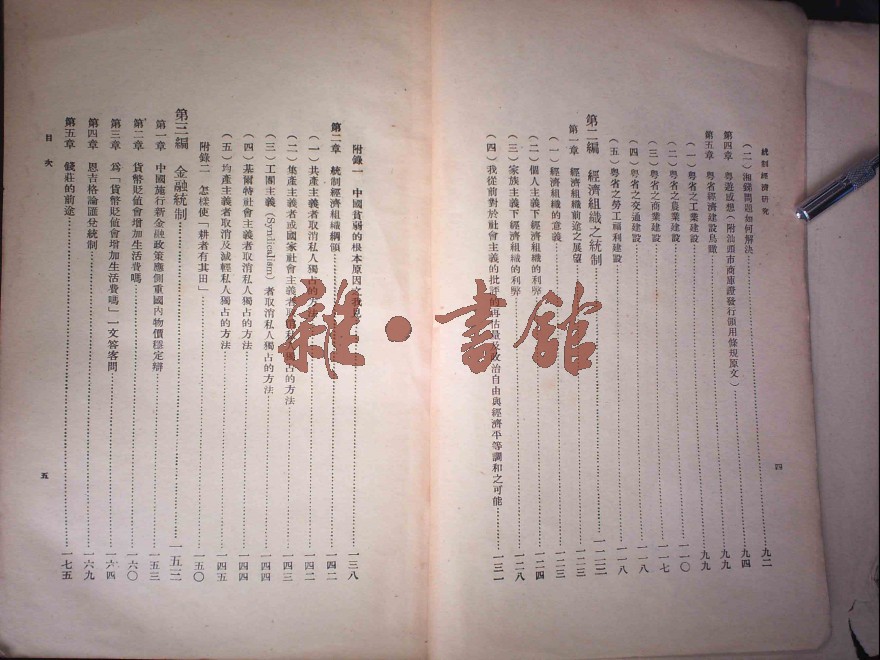 統制經濟研究
四
(二) 湘錦問題如何解決⋯⋯九二
第四章 粵遊感想(附汕頭市商庫證發行領用條規原文)⋯⋯九四
第五章 粵省經濟建設鳥瞰⋯⋯九九
(一) 粵省之工業建設⋯⋯九九
(二) 粵省之農業建設⋯⋯一一〇
(三) 粵省之商業建設⋯⋯一一七
(四) 粵省之交通建設⋯⋯一一八
(五) 粵省之勞工福利建設⋯⋯一一八
第二編 經濟組織之統制⋯⋯一二三
第一章 經濟組織前途之展望⋯⋯一二三
(一) 經濟組織的意義⋯⋯一二三
(二) 個人主義下經濟組織的利弊⋯⋯一二四
(三) 家族主義下經濟組織的利弊⋯⋯一二八
(四) 我從前對於社會主義的批評的再估量及政治自由與經濟平等調和之可能⋯⋯一三一
附錄一 中國貧弱的根本原因之我見⋯⋯一三八
第二章 統制經濟組織綱領⋯⋯一四二
(一) 共產主義者取消私人獨占的方法⋯⋯一四二
(二) 集產主義者或國家社會主義者取消私人獨占的方法⋯⋯一四三
(三) 工團主義(Syndicalism)者取消私人獨占的方法⋯⋯一四四
(四) 基爾特社會主義者取消私人獨占的方法⋯⋯一四四
(五) 均產主義者取消及減輕私人獨占的方法⋯⋯一四五
附錄二 怎樣使「耕者有其田」⋯⋯一五〇
第三編 金融統制⋯⋯一五三
第一章 中國施行新金融政策應側重國內物價穩定辯⋯⋯一五三
第二章 貨幣貶值會增加生活費嗎⋯⋯一六〇
第三章 爲「貨幣貶值會增加生活費嗎」一文答客問⋯⋯一六四
第四章 恩吉格論匯兌統制⋯⋯一六九
第五章 錢莊的前途⋯⋯一七五
目次
五
雜·書館